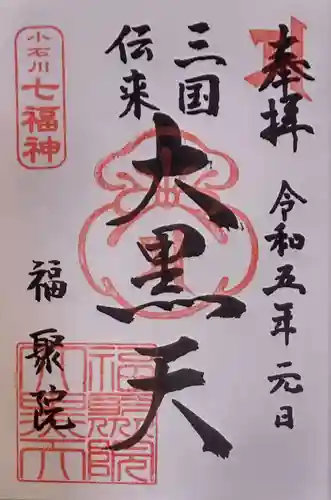 奉拝
令和五年元日
三国
伝来
大黒天
福聚院
小石川
七福神
福聚院
大黒天